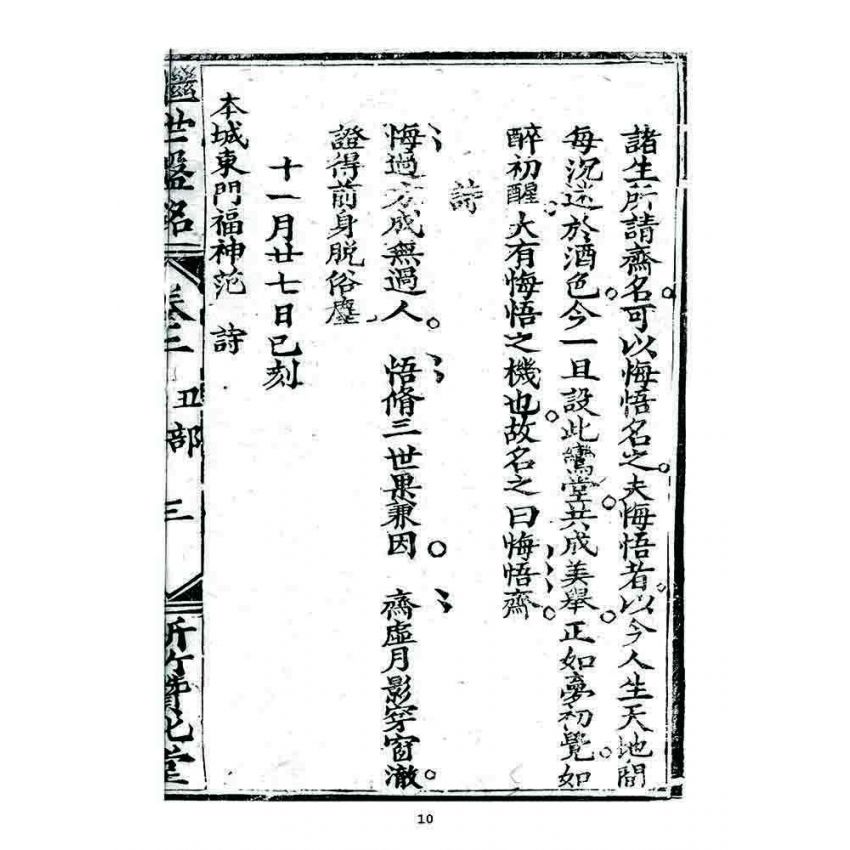 諸生所請齋名。可以悔悟名之。夫悔悟者。以今人生天地間
每沉迷於酒色。今一旦設此鸞堂。共成美舉。正如夢初覺。如
醉初醒。大有悔悟之機也。故名之曰悔悟齋。
詩
悔過方成無過人。 悟脩三世果兼因。 齋虛月影穿窗澈。
證得前身脫俗塵
十一月廿七日巳刻
本城東門福神范 詩
世盤銘 卷三 丑部 三 堂
10